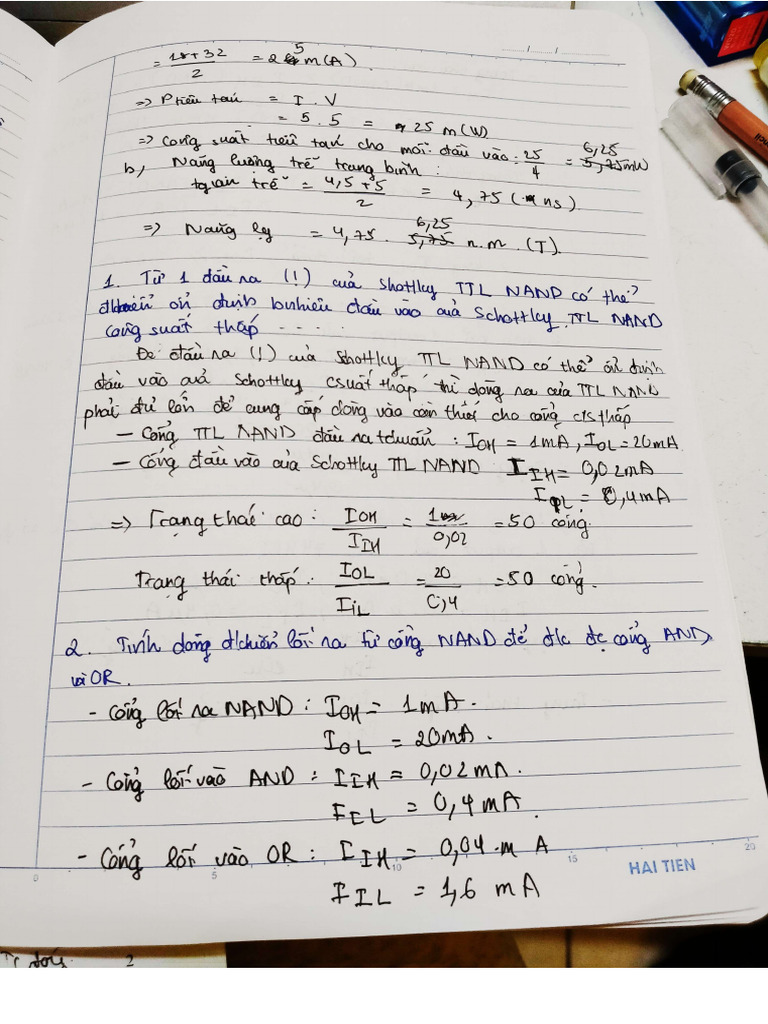 = 18+32 / 2 = 25 m(A).
=> Ptiêu tán = I . V
= 5 . 5 = 25 m(W)
=> Công suất tiêu tán cho mỗi đầu vào : 25/4 = 6,25 5,75 mW
b, Năng lượng trễ trung bình :
tgian trễ = 4,5 + 5 / 2 = 4,75 ( ns)
=> Năng lg = 4,75 . 6,25 5,75 n.m . (T).
1. Từ 1 đầu ra (!) của Shottky TTL NAND có thể
đkhiển ổn định bnhiêu đầu vào của Schottky TTL NAND
công suất thấp - - - -
Để đầu ra (!) của Shottky TTL NAND có thể ổn định
đầu vào của Schottky csuất thấp thì dòng ra của TTL NAND
phải đủ lớn để cung cấp dòng vào cần thiết cho cổng cs thấp
- Cổng TTL NAND đầu ra tchuẩn : IOH = 1mA, IOL = 20mA
- Cổng đầu vào của Schottky TTL NAND IIH = 0,02mA
= 0,4mA
=> Trạng thái cao : IOH / IIH = 1 / 0,02 = 50 cổng.
Trạng thái thấp : IOL / IiL = 20 / 0,4 = 50 cổng.
2. Tính dòng đkhiển lối ra từ cổng NAND để đk đc cổng AND
và OR.
- Cổng lối ra NAND : IOH = 1mA.
IOL = 20mA.
- Cổng lối vào AND : IIH = 0,02mA.
IIL = 0,4mA.
- Cổng lối vào OR : IIH = 0,04 mA
IIL = 1,6 mA
0 5 10 15 20
HAI TIEN
2